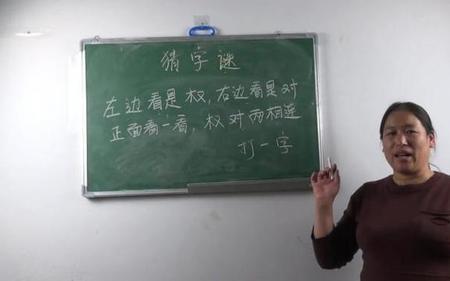 猜字谜
左边看是权，右边看是对
正面看一看，权对两相连
打一字